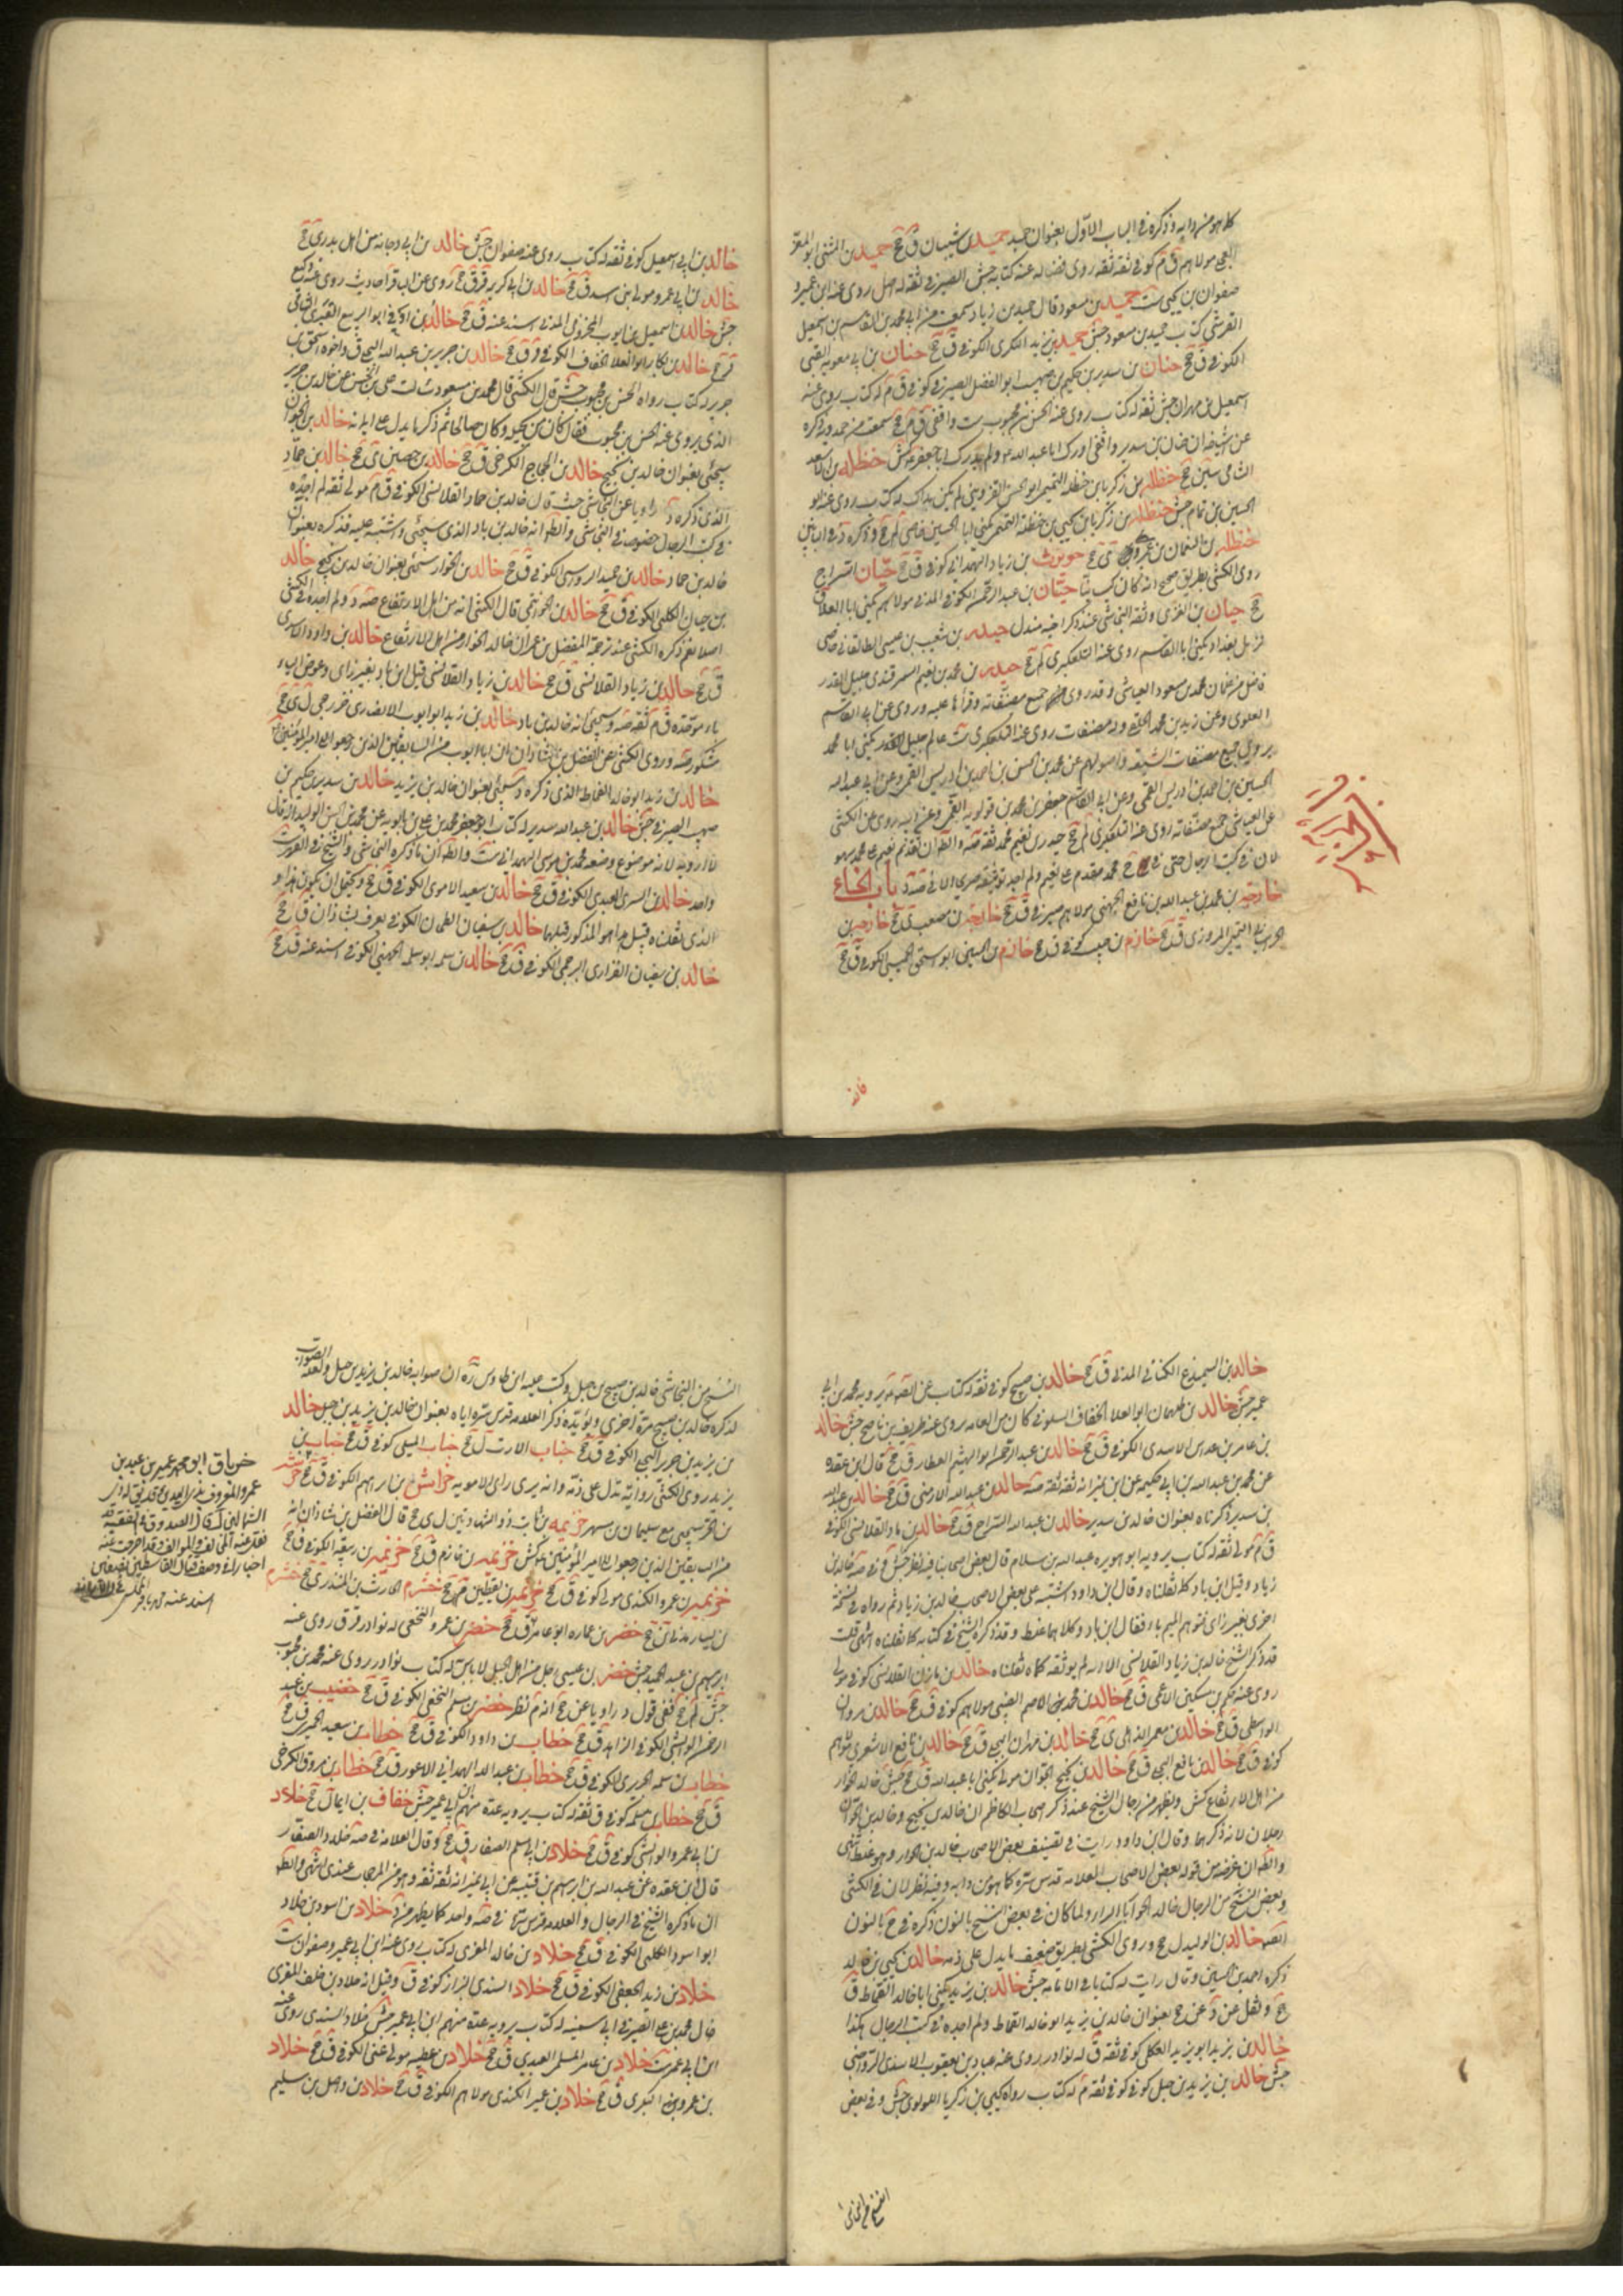 كما هو من دابه وذكره في الباب الاول بعنوان حميد حميد بن شيبان ق جخ حميد بن المثنى ابو المعزا
العجلي مولاهم ق م كوفي ثقة ثقة روى فضاله عنه كتابه جش الصيرفي ثقه له اصل روى عنه ابن عمير و
صفوان بن يحيى ست حميد بن مسعود قال حميد بن زياد سمعت من ابي محمد بن القاسم بن اسمعيل
القرشي كتاب حميد بن مسعود جش حميد بن يزيد البكري الكوفي ق جخ حنان بن ابي معويه القبي
الكوفي ق جخ حنان بن سدير بن حكيم بن صهيب ابو الفضل الصيرفي كوفي ق م له كتاب روى عنه
اسمعيل بن مهران جش ثقه له كتاب روى عنه الحسن بن محبوب ست واقفي ق م جخ سمعت من حمدويه ذكره
عن اشياخه ان حنان بن سدير واقفي ادرك ابا عبد الله ولم يدرك ابا جعفر كش حنظله بن اسعد
الشامي سين جخ حنظله بن زكريا بن حنظله التميمي ابو الحسن القزويني لم يكن بذاك له كتاب روى عنه ابو
الحسين بن تمام جش حنظله بن زكريا بن يحيى بن حنظلة التميمي يكنى ابا الحسين خاصي لم جخ وذكره د في البابين
حنظله بن النعمان بن عمرو ى جخ حويرث بن زياد الهمداني كوفي ق جخ حيان السراج
روى الكشي بطريق صحيح انه كان كيسانيا حيان بن عبد الرحمن الكوفي المدني مولاهم يكنى ابا العلا ق
جخ حيان بن العنزي وثقه النجاشي عند ذكر اخيه مندل حيدر بن شعيب بن عيسى الطالقاني خاصي
نزيل بغداد يكنى ابا القاسم روى عنه التلعكبري لم جخ حيدر بن محمد بن نعيم السمرقندي جليل القدر
فاضل من غلمان محمد بن مسعود العياشي وقد روى جميع مصنفاته وقراها عليه وروى عن ابي القاسم
العلوي وعن زيد بن محمد الحلقي وله مصنفات روى عنه التلعكبري ست عالم جليل القدر يكنى ابا محمد
يروي جميع مصنفات الشيعه واصولهم عن محمد بن الحسن بن احمد بن ادريس القمي وعن ابي عبد الله
الحسين بن احمد بن ادريس القمي وعن ابي القاسم جعفر بن محمد بن قولويه القمي وعن ابيه روى عن الكشي
عن العياشي جميع مصنفاته روى عنه التلعكبري لم جخ حيدر بن نعيم بن محمد ثقه صه والظ ان تقدم نعيم على محمد سهو
لان في كتب الرجال حتى في جخ محمد مقدم على نعيم ولم اجد توثيقه صريحا الا في صه ود باب الخاء
خارجه بن محمد بن عبد الله بن نافع الجهني مولاهم صيرفي ق جخ خارجه بن مصعب ق جخ خازم بن
خازم بن حبيب كوفي ق جخ خازم بن الحسين ابو اسحق الحميسي الكوفي ق جخ
خالد بن ابي اسمعيل كوفي ثقه له كتاب روى عنه صفوان جش خالد بن ابي دجانه من اهل بدر ى جخ
خالد بن ابي عمرو مولى بني اسد ق جخ خالد بن ابي كريمه قر ق جخ روى عن الباقر احاديث روى عنه وكيع
جش خالد بن اسمعيل بن ايوب المخزومي المدني اسند عنه ق جخ خالد بن اوفى ابو الربيع العنزي الشامي
قر جخ خالد بن بكار ابو العلا الخفاف الكوفي قر ق جخ خالد بن جرير بن عبد الله البجلي ق واخوه اسحق بن
جرير له كتاب رواه الحسن بن محبوب جش قال الكشي قال محمد بن مسعود سئلت علي بن الحسن عن خالد بن جرير
الذي يروي عنه الحسن بن محبوب فقال كان من بجيلة وكان صالحا ثم ذكر ما يدل على ايمانه خالد بن الجوان
سيجئ بعنوان خالد بن نجيح خالد بن الحجاج الكرخي ق جخ خالد بن حصين ى جخ خالد بن حماد
الذي ذكره د راويا عن النجاشي حيث قال خالد بن حماد القلانسي الكوفي ق م مولى ثقه لم اجده
في كتب الرجال خصوصا في النجاشي والظ انه خالد بن ماد الذي سيجئ واشتبه عليه فذكره بعنوان
خالد بن حماد خالد بن حميد الرواسي الكوفي ق جخ خالد بن الحوار سيجئ بعنوان خالد بن نجيح خالد
بن حيان الكلبي الكوفي ق جخ خالد بن الخوارزمي قال الكشي انه من اهل الارتفاع صه د ولم اجده في كش
اصلا نعم ذكره الكشي عند ترجمة المفضل بن عمر ان خالد الجوان من اهل الارتفاع خالد بن داود الاسدي
ق جخ خالد بن زياد القلانسي ق جخ خالد بن زياد القلانسي قيل ابن باد بغير زاي وعوض الياء
باء موحده ق م ثقه صه وسيجئ انه خالد بن ماد خالد بن زيد ابو ايوب الانصاري خزرجي ل ى جخ
مشكور صه وروى الكشي عن الفضل بن شاذان ان ابا ايوب من السابقين الذين رجعوا الى امير المؤمنين ع
خالد بن زيد ابو خالد القماط الذي ذكره د سيجئ بعنوان خالد بن يزيد خالد بن سدير بن حكيم بن
صهيب الصيرفي جش خالد بن عبد الله بن سدير له كتاب ابو جعفر محمد بن علي بن بابويه عن محمد بن الحسن الوليد انه قال
لا ارويه لانه موضوع وضعه محمد بن موسى الهمداني ست والظ ان ما ذكره النجاشي والشيخ في الفهرست
واحد خالد بن السري العبدي الكوفي ق جخ خالد بن سعيد الاموي الكوفي ق جخ ويحتمل ان يكون هذا و
الذي نقلناه قبيل هذا هو المذكور قبلهما خالد بن سفيان الطحان الكوفي يعرف بشاذان ق جخ
خالد بن سفيان الفزاري البرجمي الكوفي ق جخ خالد بن سلمه ابو سلمه الجهني الكوفي اسند عنه ق جخ
خالد بن السميدع الكناني المدني ق جخ خالد بن صبيح كوفي ثقه له كتاب عن ابي عبد الله يرويه محمد بن ابي
عمير جش خالد بن طهمان ابو العلا الخفاف السلولي كان من العامه روى عنه ظريف بن ناصح جش خالد
بن عامر بن عداس الاسدي الكوفي ق جخ خالد بن عبد الرحمن ابو الهيثم العطار ق جخ قال ابن عقده
عن محمد بن عبد الله بن ابي حكيمه عن ابن نمير انه ثقه ثقه صه خالد بن عبد الله الارمني ق جخ خالد بن عبد الله
بن سدير ذكرناه بعنوان خالد بن سدير خالد بن عبد الله السراج ق جخ خالد بن ماد القلانسي الكوفي
ق م مولى ثقه له كتاب يرويه ابو هريره عبد الله بن سلام قال بعض اصحابنا فيه نظر جش وفي صه خالد بن
زياد وقيل ابن باد كما نقلناه وقال ابن داود اشتبه على بعض الاصحاب خالد بن زياد ثم رواه في نسخة
اخرى بغير زاي فتوهم الميم باء فقال ابن باد وكلاهما غلط وقد ذكره الشيخ في كتابه كما نقلناه انتهى قلت
قد ذكر الشيخ خالد بن زياد القلانسي الا انه لم يوثقه كما نقلناه خالد بن مازن القلانسي كوفي مولى
روى عنه حكم بن مسكين الاعمى ق جخ خالد بن محمد الاصم الضبي مولاهم كوفي ق جخ خالد بن مروان
الواسطي ق جخ خالد بن معمر الذهلي ى جخ خالد بن مهران البجلي ق جخ خالد بن نافع الاشعري مولاهم
كوفي ق جخ خالد بن نافع البجلي ق جخ خالد بن نجيح الجوان مولى يكنى ابا عبد الله ق جخ جش خالد الجوان
من اهل الارتفاع كش ويظهر من رجال الشيخ عند ذكر اصحاب الكاظم ان خالد بن نجيح وخالد بن الجوان
رجلان لانه ذكرهما وقال ابن داود رايت في تصنيف بعض الاصحاب خالد بن الحوار وهو غلط انتهى
والظ ان غرضه من قوله بعض الاصحاب العلامه قدس سره كما هو من دابه وفيه نظر لان في الكشي
وبعض النسخ من الرجال خالد الحوار بالراء ولما كان في بعض النسخ بالنون ذكره في جخ بالنون
خالد بن الوليد ل جخ وروى الكشي بطريق ضعيف ما يدل على ذمه خالد بن يحيى بن خالد
ذكره احمد بن الحسين وقال رايت له كتابا في الامامه جش خالد بن يزيد يكنى ابا خالد القماط ق
جخ ونقل عن د عن جخ بعنوان خالد بن يزيد ابو خالد القماط ولم اجده في كتب الرجال هكذا
خالد بن يزيد ابو يزيد العكلي كوفي ثقه ق له نوادر روى عنه عباد بن يعقوب الاسدي الرواجني
جش خالد بن يزيد بن جبل كوفي ثقه م له كتاب رواه يحيى بن زكريا اللؤلوي جش وفي بعض
النسخ من النجاشي خالد بن صبيح بن جبل وكتب عليه ابن طاوس ره ان صوابه خالد بن يزيد بن جبل ولعله الصواب
لذكره خالد بن صبيح مرة اخرى ويؤيده ذكر العلامه قدس سره اياه بعنوان خالد بن يزيد بن جبل خالد
بن يزيد بن جرير البجلي الكوفي ق جخ خباب الارت ل جخ خباب المسلي كوفي ق جخ خباب بن
يزيد روى الكشي رواية تدل على ذمه وانه يرى راي الامويه خراش بن ابراهيم الكوفي ق جخ خرشه
بن الحر سيجئ مع سليمان بن مسهر خزيمه بن ثابت ذو الشهادتين ل ى جخ قال الفضل بن شاذان انه
من السابقين الذين رجعوا الى امير المؤمنين ع كش خزيمه بن خازم ق جخ خزيمه بن ربيعه الكوفي ق جخ
خزيمه بن عمرو الكندي مولى كوفي ق جخ خزيمه بن يقطين جخ خشرم الحارث بن المنذر ى جخ خشرم
بن يسار مدني ق جخ خضر بن عماره ابو عامر ق جخ خضر بن عمرو النخعي له نوادر قر ق روى عنه
ابرهيم بن عبد الحميد جش خضر بن عيسى رجل من اهل الجبل لا باس به له كتاب نوادر روى عنه محمد بن محبوب
جش لم جخ ففي قول د راويا عن جخ انه م نظر خضر بن مسلم النخعي الكوفي ق جخ خضيب بن عبد
الرحمن الوابشي الكوفي الزاهد ق جخ خطاب بن داود الكوفي ق جخ خطاب بن سعيد الحميري ق جخ
خطاب بن سلمه الجريري الكوفي ق جخ خطاب بن عبد الله الهمداني الاعور ق جخ خطاب بن مروق الكرخي
ق جخ خطاب بن مسلمه كوفي ق ثقه له كتاب يرويه عدة منهم ابن ابي عمير جش خفاف بن ايماء ل جخ خلاد
بن ابي عمرو الوابشي كوفي ق جخ خلاد بن ابي مسلم الصفار ق جخ وقال العلامه في صه خلاد الصفار
قال ابن عقده عن عبد الله بن ابرهيم بن قتيبه عن ابن نمير انه ثقة ثقة وهو من المرجحات عندي انتهى والظ
ان ما ذكره الشيخ في الرجال والعلامه قدس سرهما في صه واحد كما يظهر من د خلاد بن اسود بن خلاد
ابو اسود الكلبي الكوفي ق جخ خلاد بن خالد المقري له كتاب روى عنه ابن ابي عمير وصفوان ست
خلاد بن زيد الجعفي الكوفي ق جخ خلاد السندي البزاز كوفي ق وقيل انه خلاد بن خلف المقري
خال محمد بن علي الصيرفي ابي سمينه له كتاب يرويه عدة منهم ابن ابي عمير جش خلاد السندي روى عنه
ابن ابي عمير ست خلاد بن عامر المسلمي العبدي ق جخ خلاد بن عطيه مولى غني الكوفي ق جخ خلاد
بن عمرو بن البكري ق جخ خلاد بن عمير الكندي مولاهم الكوفي ق جخ خلاد بن واصل بن سليم